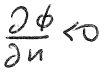 ∂ϕ/∂n <0